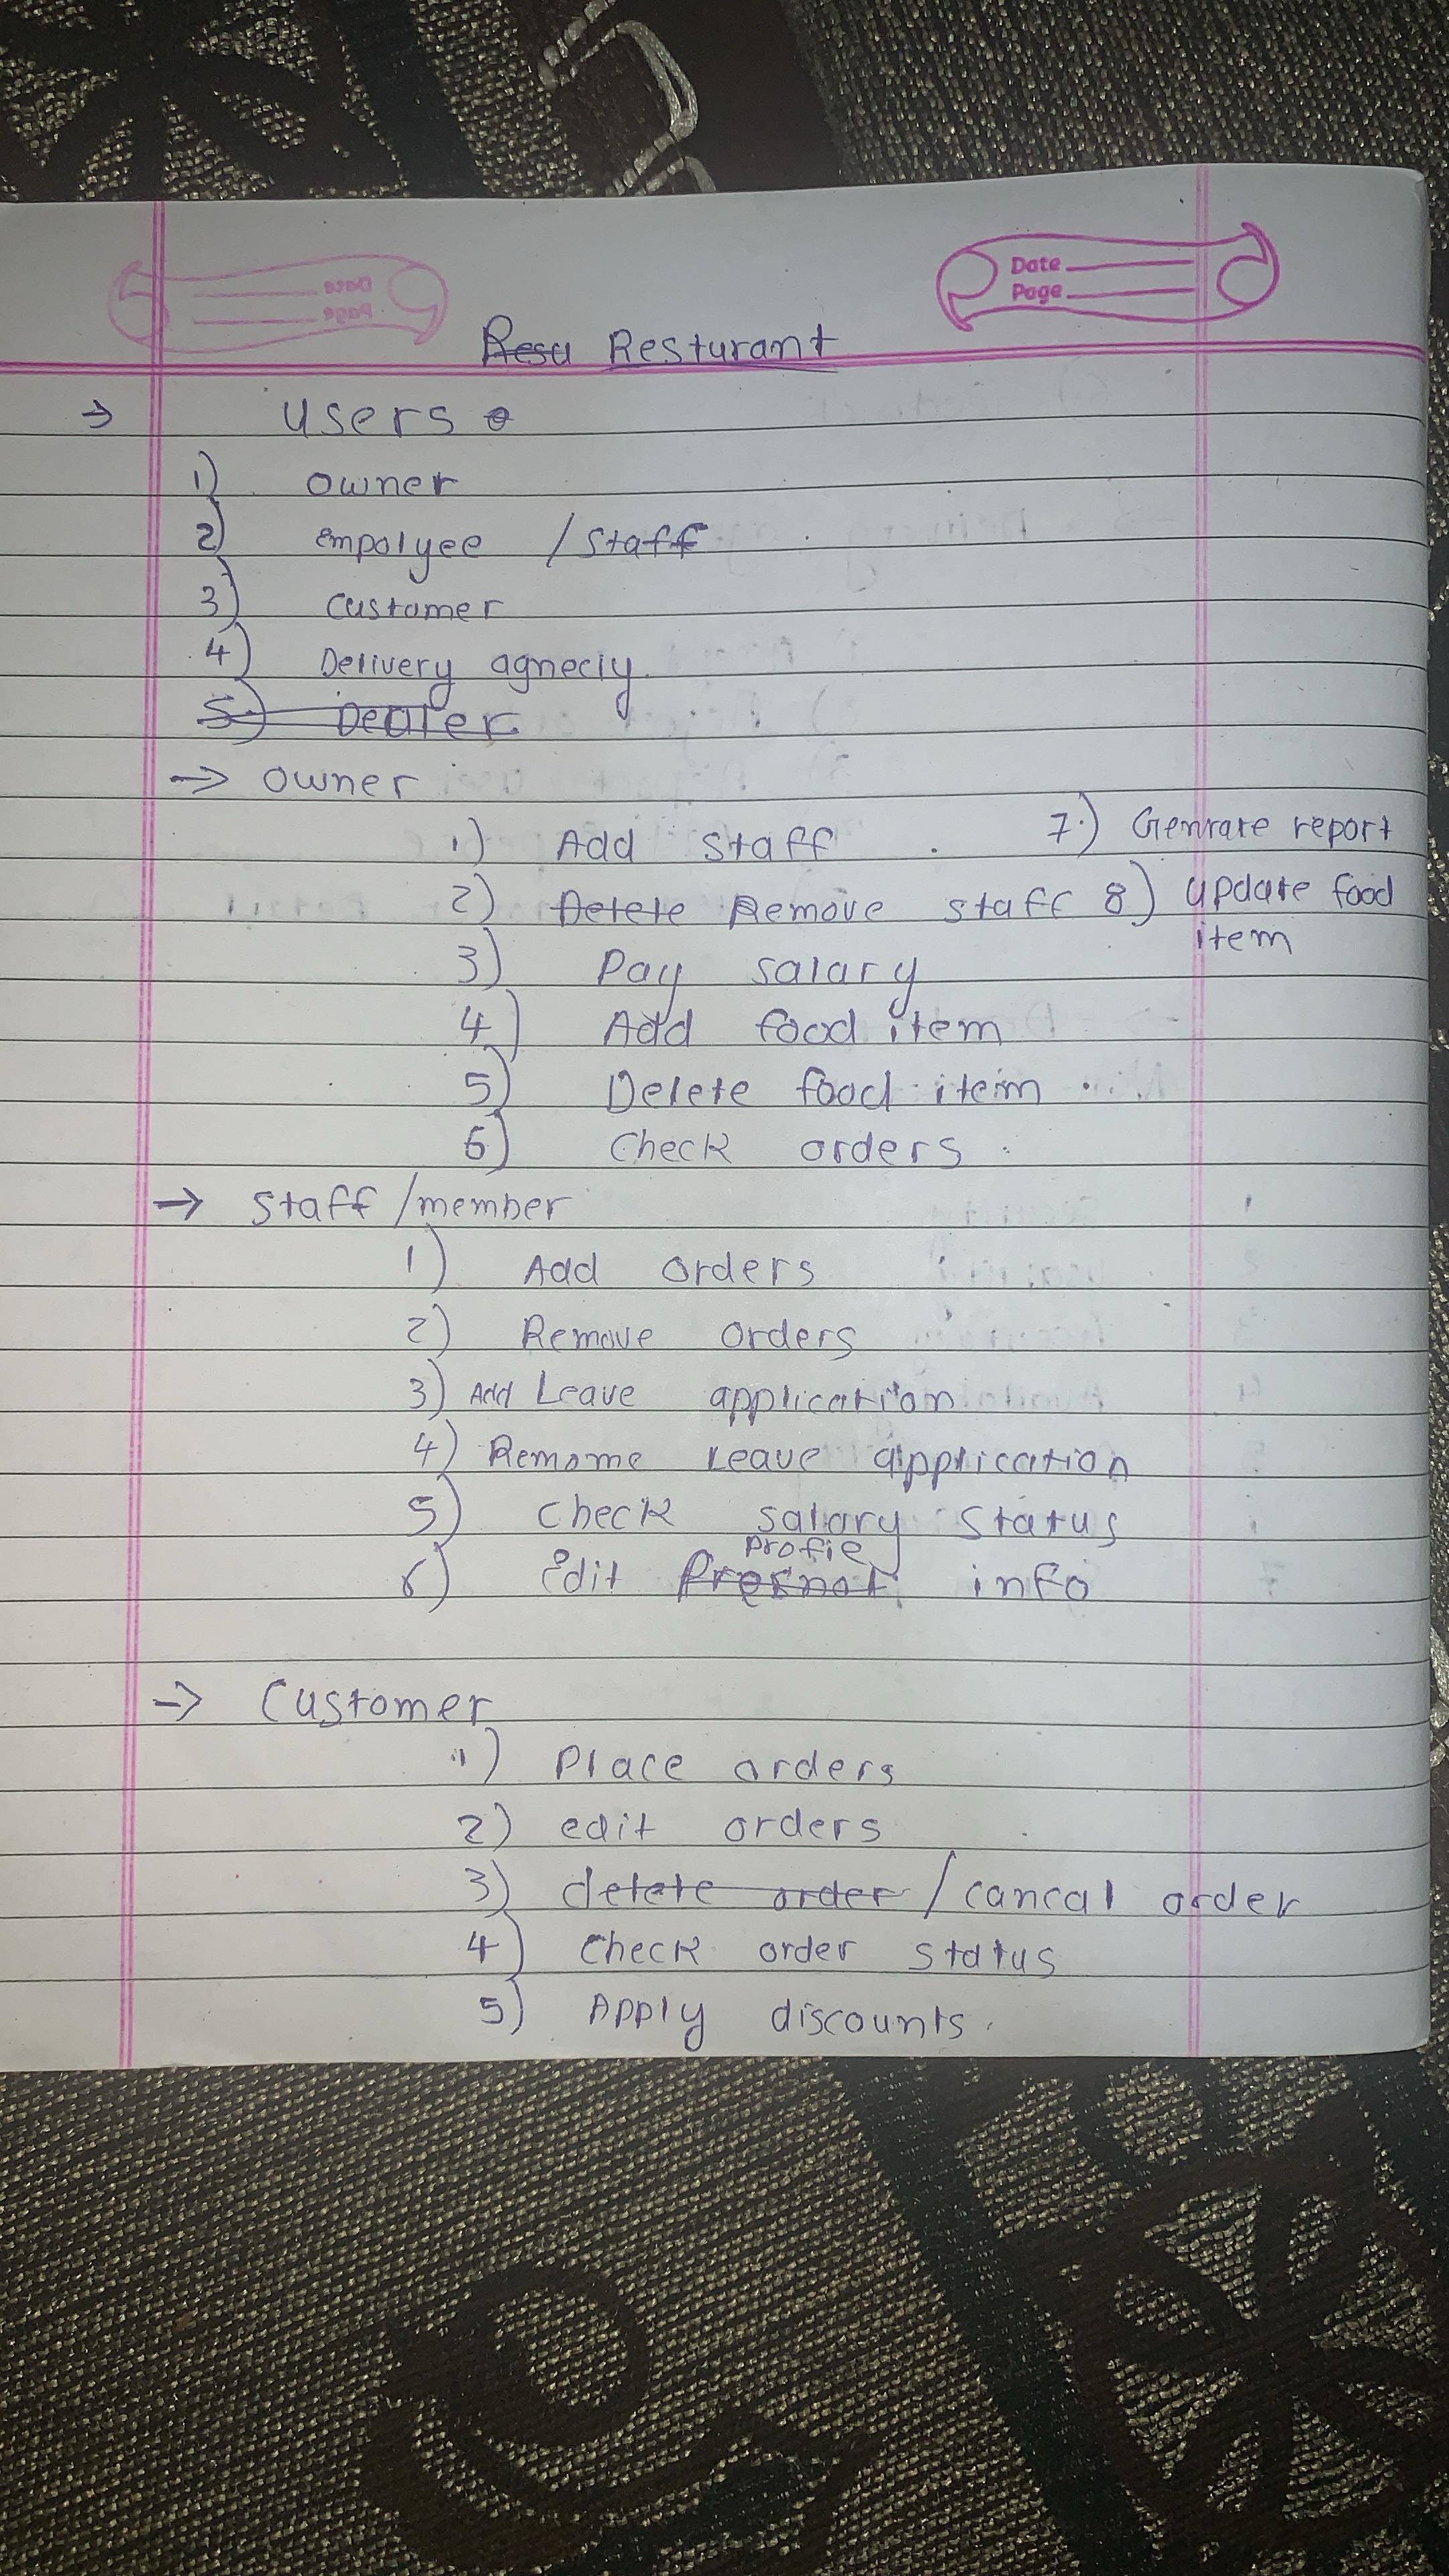 Date
Page
Resu Resturant
→ users
1) owner
2) empolyee / staff
3) customer
4) Delivery agneciy
5) Dealer
→ owner
1) Add staff
2) Delete Remove staff
3) Pay salary
4) Add food item
5) Delete food item
6) check orders
7.) Genrate report
8) update food
item
→ staff /member
1) Add orders
2) Remove orders
3) Add Leave application
4) Remome leave application
5) check salary status
profie
6) Edit info
→ Customer
1) place orders
2) edit orders
3) delete order / cancal order
4) check order status
5) Apply discounts.